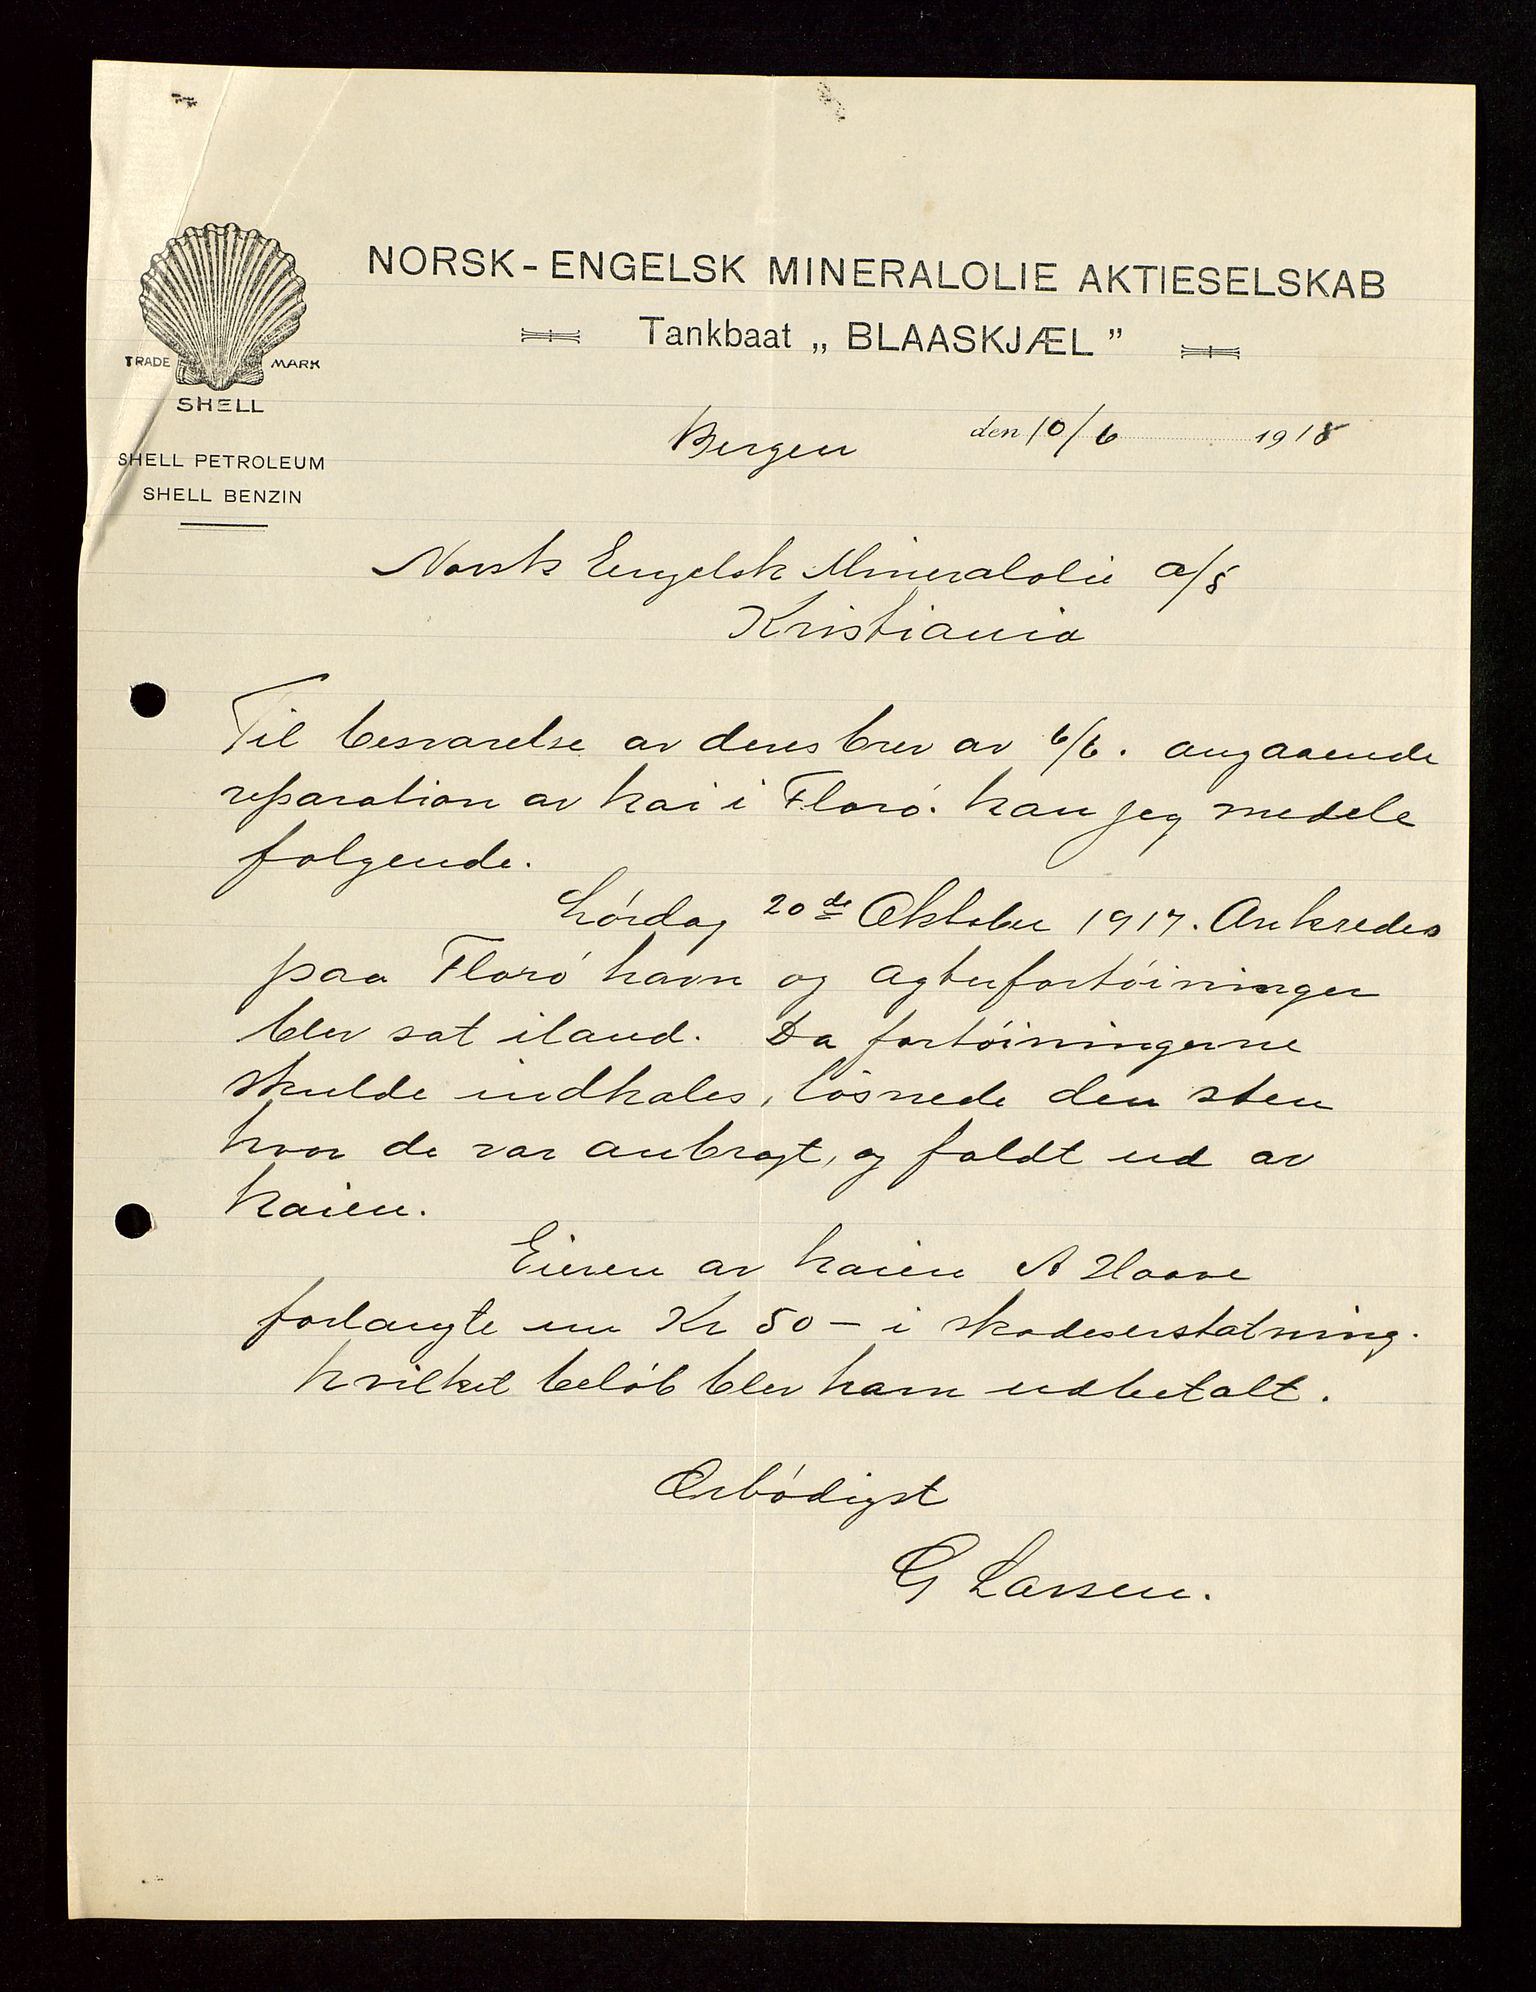 NORSK-ENGELSK MINERALOLIE AKTIESELSKAB
Tankbaat „BLAASKJÆL”
TRADE MARK
SHELL
SHELL PETROLEUM
SHELL BENZIN
Bergen den 10/6 1918
Norsk Engelsk Mineralolie a/s
Kristiania
Til besvarelse av deres brev av 6/6. angaaende
reparation av kai i Florö. kan jeg medele
følgende.
Lördag 20de Oktober 1917. Ankredes
paa Florö havn og agterfortöininger
blev sat iland. Da fortöiningerne
skulde indhales, lösnede den sten
hvor de var anbragt, og faldt ud av
kaien.
Eieren av kaien A Haave
forlangte en Kr 50 — i skadeserstatning.
hvilket belöb blev ham udbetalt.
Ærbödigst
G Larsen.